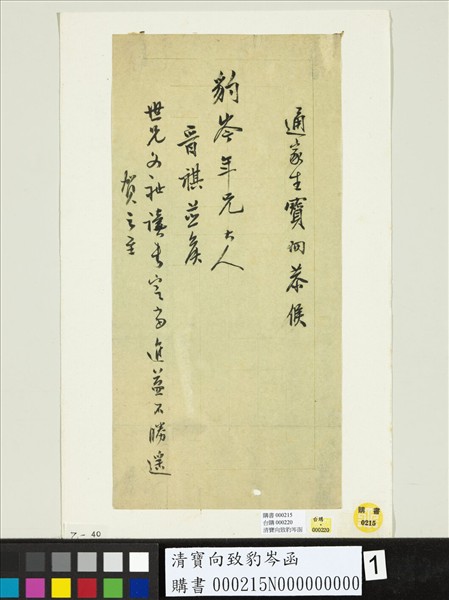 通家生寶向恭候
豹岑年兄大人
晉祺並候
世兄文祉讀書定當進益不勝遙
賀之至
購書 000215
台購 000220
清寶向致豹岑函
台購
000220
購書
0215
7-40
清寶向致豹岑函
購書 000215N000000000
1